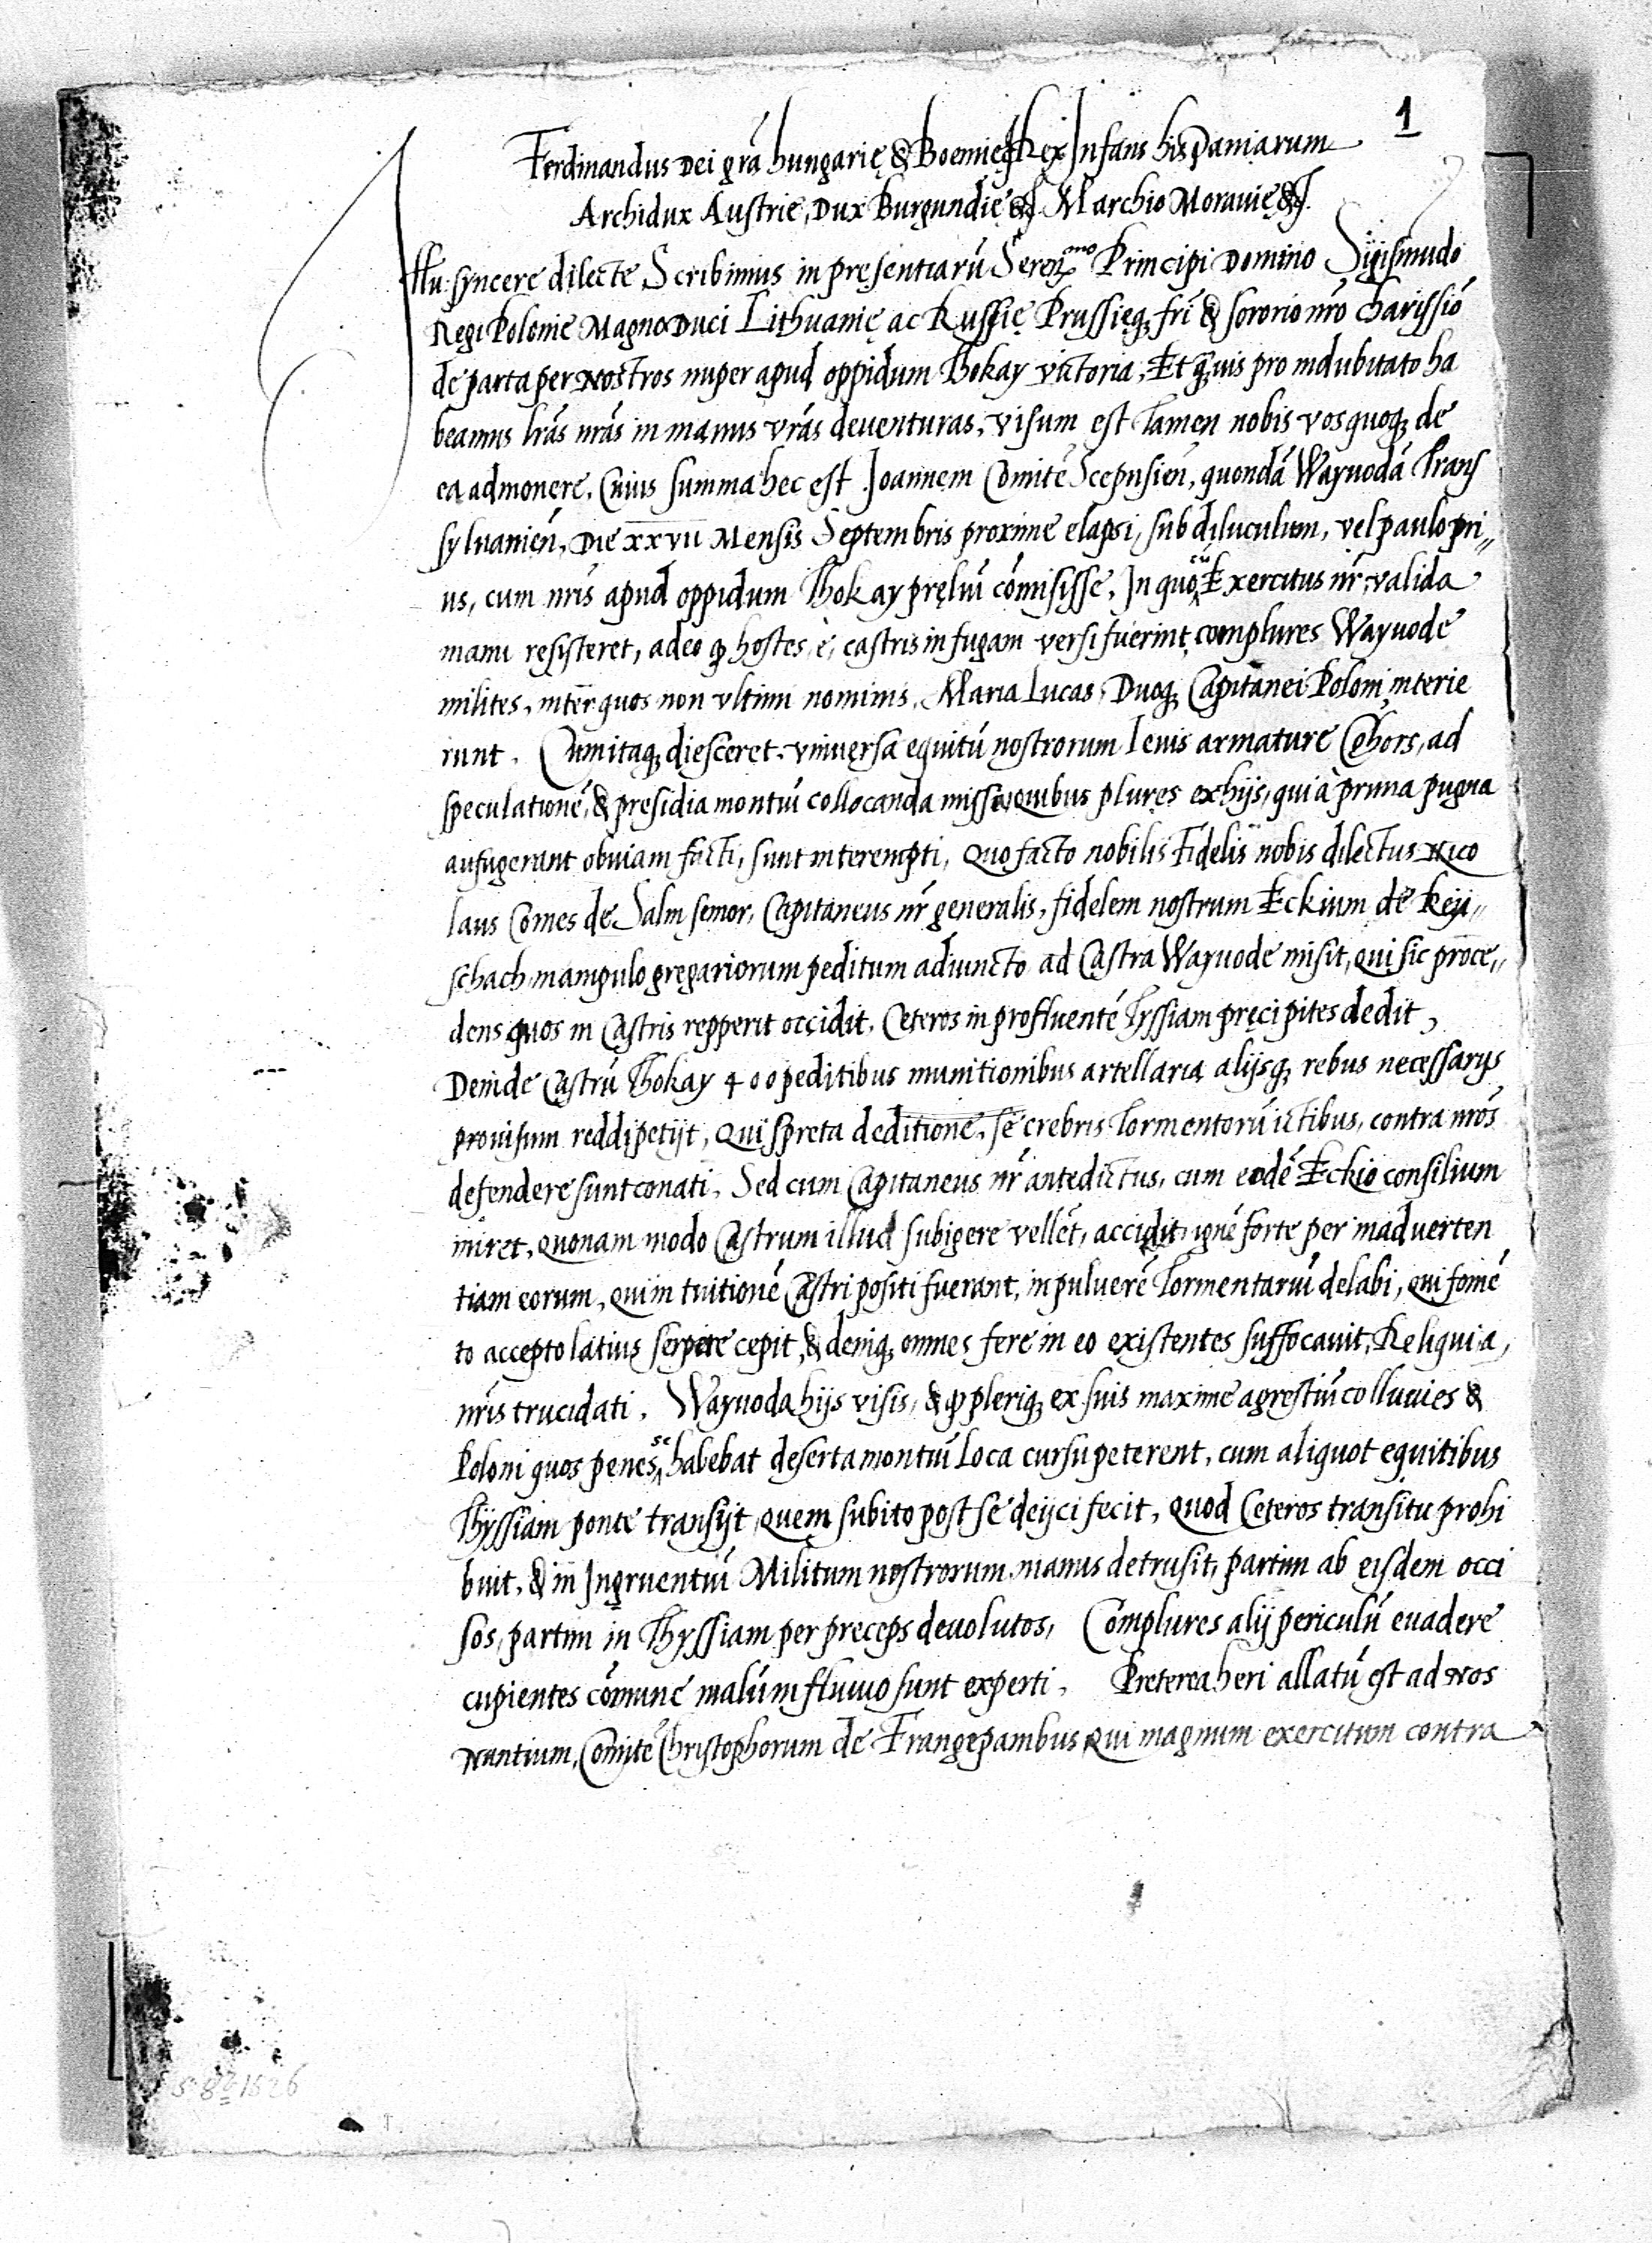 1
Ferdinandus Dei grã hungarię & Boemię &c Rex Infans hispaniarum
Archidux Austrie, Dux Burgundię &c Marchio Moravie &c.
syncere dilecte Scribimus in pręsentiarũ Serenᵐᵒ Principi Domino Sigismũdo
Regi Polonie Magno Duci Lithuanię ac Russię Prussięq; fri & sororio nro charissio
de parta per Nostros nuper apud oppidum Thokay victoria, Et q̃uis pro indubitato ha
beamus lrãs nrãs in manus vrãs deventuras, visum est tamen nobis vos quoq; de
ea admonere, Cuius summa hec est Joannem Comitẽ Scepusień, quondã Wayuodã Trans
sylvanień, Die xxvii Mensis Septembris proxime elapsi, sub diluculum, vel paulo pri„
us, cum nris apud oppidum Thokay pręliũ cõmisisse, In quo cũ Exercitus nr valida
manu resisteret, adeo q hostes è castris in fugam versi fuerint, complures Wayuode
milites, inter quos non ultimi nominis, Maria Lucas, Duoq; Capitanei Poloni interie
runt. Cumitaq; diesceret, universa equitũ nostrorum levis armature Cohors, ad
speculationẽ, & presidia montiũ collocanda missa, quibus plures ex hijs, qui à prima pugna
aufugerant obviam facti, sunt interempti, Quo facto nobilis fidelis nobis dilectus Nico
laus Comes de Salm senior, Capitaneus nr generalis, fidelem nostrum Eckium de Reij„
schach manipulo gregariorum peditum adiuncto ad Castra Wayuode misit, qui sic proce„
dens quos in Castris repperit occidit, Ceteros in profluentẽ Tyssiam pręcipites dedit,
Deinde Castrũ Thokay 400 peditibus munitionibus artellaria alijsq; rebus necessarijs
provisum reddi petijt, Qui spreta deditione, se crebris Tormentorũ ictibus, contra nros
defendere sunt conati, Sed cum Capitaneus nr antedictus, cum eodẽ Eckio consilium
iniret, quonam modo Castrum illud subigere vellet, accidit, ignẽ forte per inadverten
tiam eorum, qui in tuitionẽ Castri positi fuerant, in pulverẽ Tormentariũ delabi, qui fomẽ
to accepto latius serpere cepit, & deniq; omnes fere in eo existentes suffocavit, Reliqui a
nris trucidati. Wayuoda hijs visis, & q pleriq; ex suis maxime agrestiũ colluvies &
Poloni quos penes se habebat deserta montiũ loca cursu peterent, cum aliquot equitibus
Thyssiam ponte transijt, quem subito post se deijci fecit, Quod Ceteros transitu prohi
buit, & in Ingruentiũ Militum nostrorum manus detrusit, partim ab eisdem occi
sos, partim in Thyssiam per preceps devolutos, Complures alij periculũ evadere
cupientes cõmune malũ in fluvio sunt experti. Preterea heri allatũ est ad Nos
Nuntium, Comitẽ Christophorum de Frangepanibus, Qui magnum exercitum contra
1526